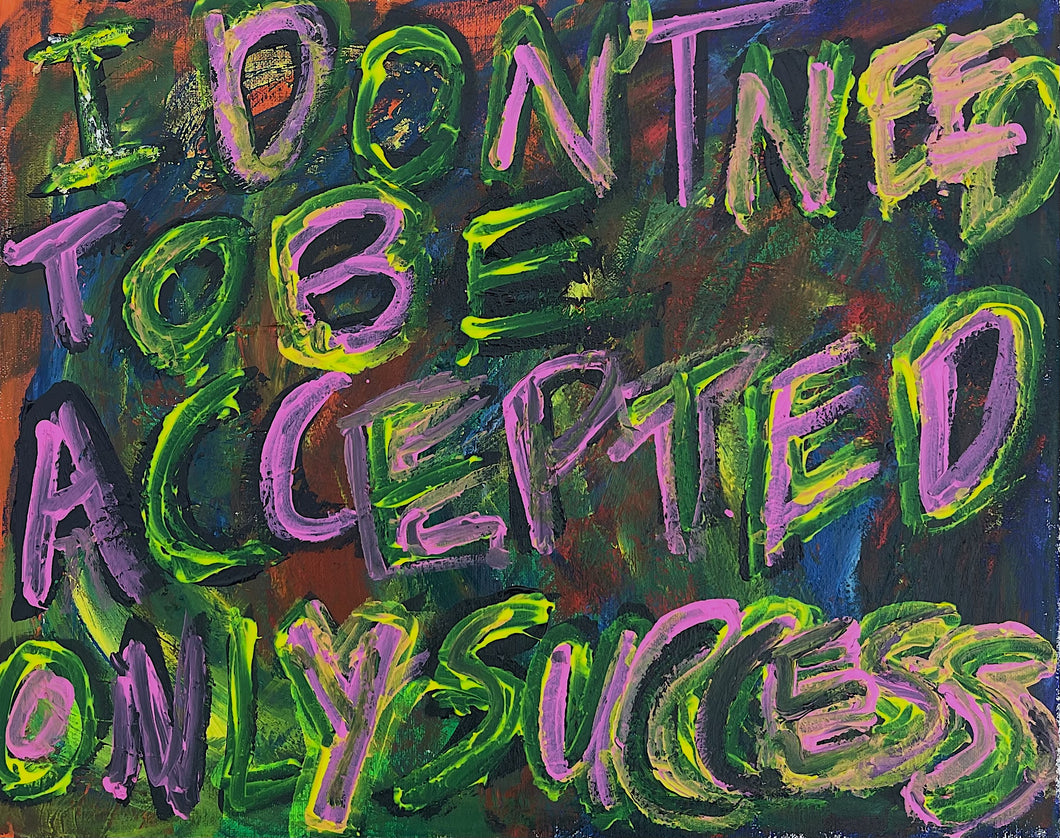 I DON'T NEED
TO BE
ACCEPTED
ONLY SUCCESS